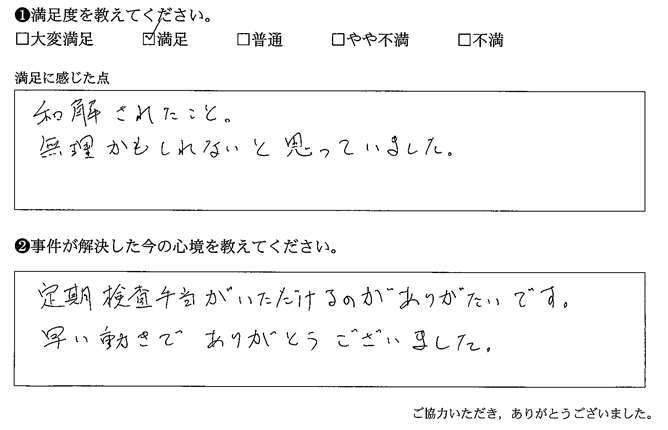 ❶満足度を教えてください。
□大変満足 ☑満足 □普通 □やや不満 □不満
満足に感じた点
和解されたこと。
無理かもしれないと思っていました。
❷事件が解決した今の心境を教えてください。
定期検査手当がいただけるのがありがたいです。
早い動きでありがとうございました。
ご協力いただき，ありがとうございました。